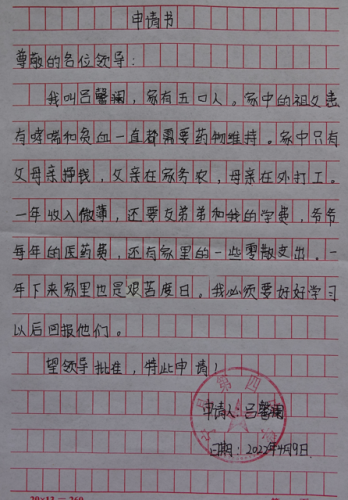 申请书
尊敬的各位领导:
我叫吕馨斓,家有五口人。家中的祖父患
有哮喘和贫血一直都需要药物维持。家中只有
父母亲挣钱,父亲在家务农,母亲在外打工。
一年收入微薄,还要交弟弟和我的学费,爷爷
每年的医药费,还有家里的一些零散支出。一
年下来家里也是艰苦度日。我必须要好好学习
以后回报他们。
望领导批准,特此申请!
申请人:吕馨斓
日期:2022年4月9日
第四